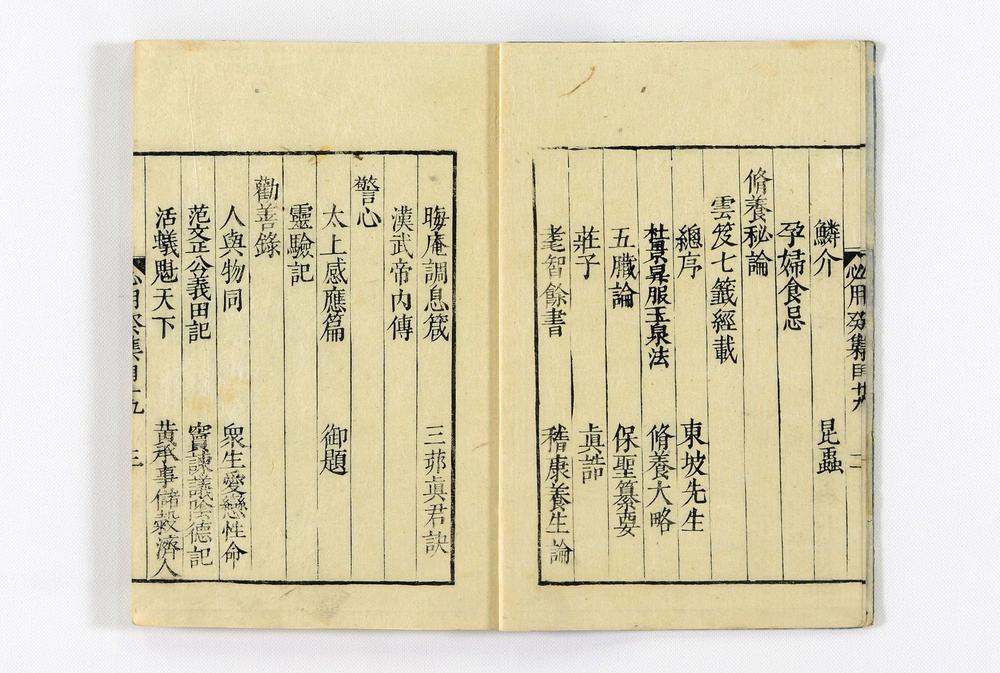 必用癸集目
二
鱗介　昆蟲
孕婦食忌
脩養秘論
雲笈七籤經載
總序　東坡先生
杜景昇服玉泉法　脩養大略
五臟論　保聖纂要
莊子　眞誥
耄智餘書　嵇康養生論
晦庵調息箴　三茆眞君訣
漢武帝内傳
警心
太上感應篇　御題
靈驗記
勸善錄
人與物同　衆生愛戀性命
范文正公義田記　竇諫議陰德記
活蟻魁天下　黄承事儲穀濟人